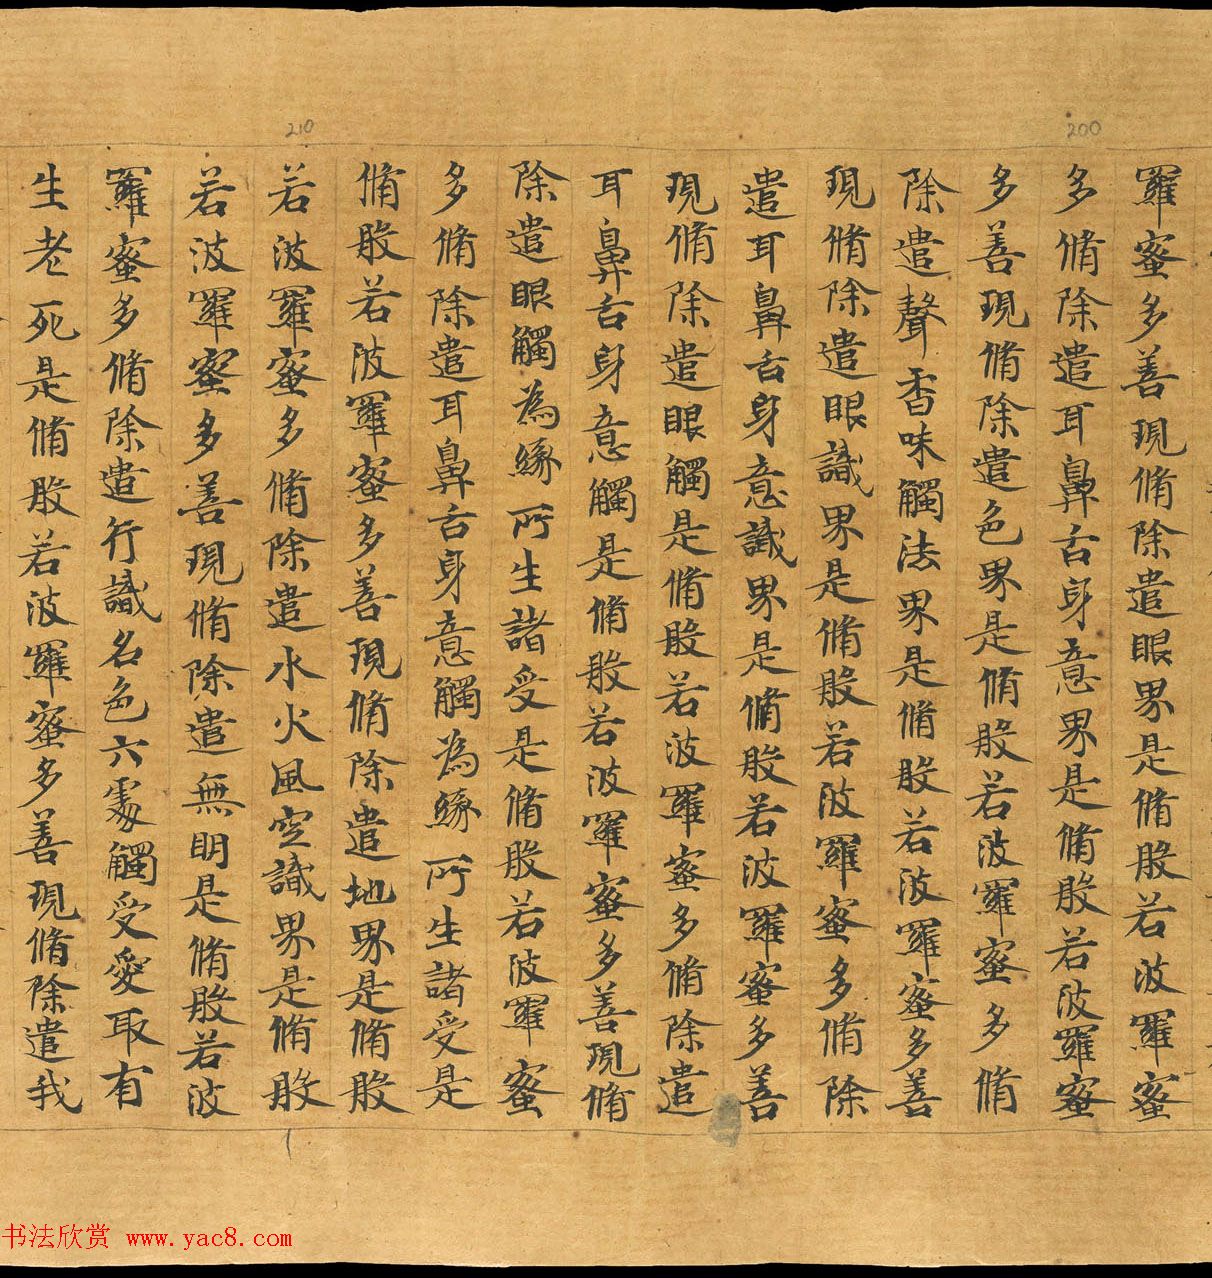 200
210
羅蜜多善現脩除遣眼界是脩般若波羅蜜
多脩除遣耳鼻舌身意界是脩般若波羅蜜
多善現脩除遣色界是脩般若波羅蜜多脩
除遣聲香味觸法界是脩般若波羅蜜多善
現脩除遣眼識界是脩般若波羅蜜多脩除
遣耳鼻舌身意識界是脩般若波羅蜜多善
現脩除遣眼觸是脩般若波羅蜜多脩除遣
耳鼻舌身意觸是脩般若波羅蜜多善現脩
除遣眼觸為緣所生諸受是脩般若波羅蜜
多脩除遣耳鼻舌身意觸為緣所生諸受是
脩般若波羅蜜多善現脩除遣地界是脩般
若波羅蜜多脩除遣水火風空識界是脩般
若波羅蜜多善現脩除遣無明是脩般若波
羅蜜多脩除遣行識名色六處觸受愛取有
生老死是脩般若波羅蜜多善現脩除遣我
书法欣赏 www.yac8.com